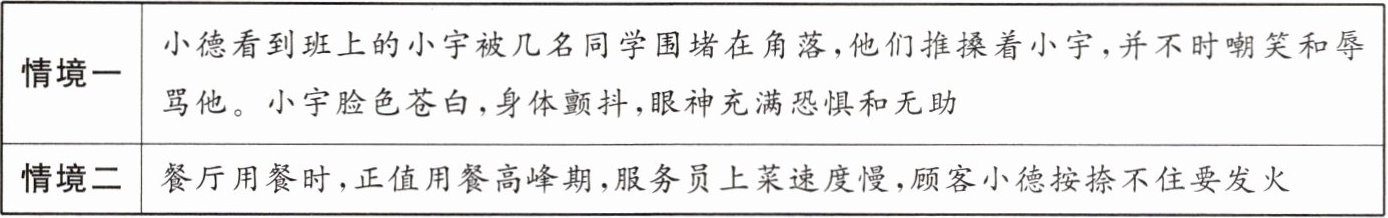 情境一
小德看到班上的小宇被几名同学围堵在角落,他们推搡着小宇,并不时嘲笑和辱
骂他。小宇脸色苍白,身体颤抖,眼神充满恐惧和无助
情境二
餐厅用餐时,正值用餐高峰期,服务员上菜速度慢,顾客小德按捺不住要发火